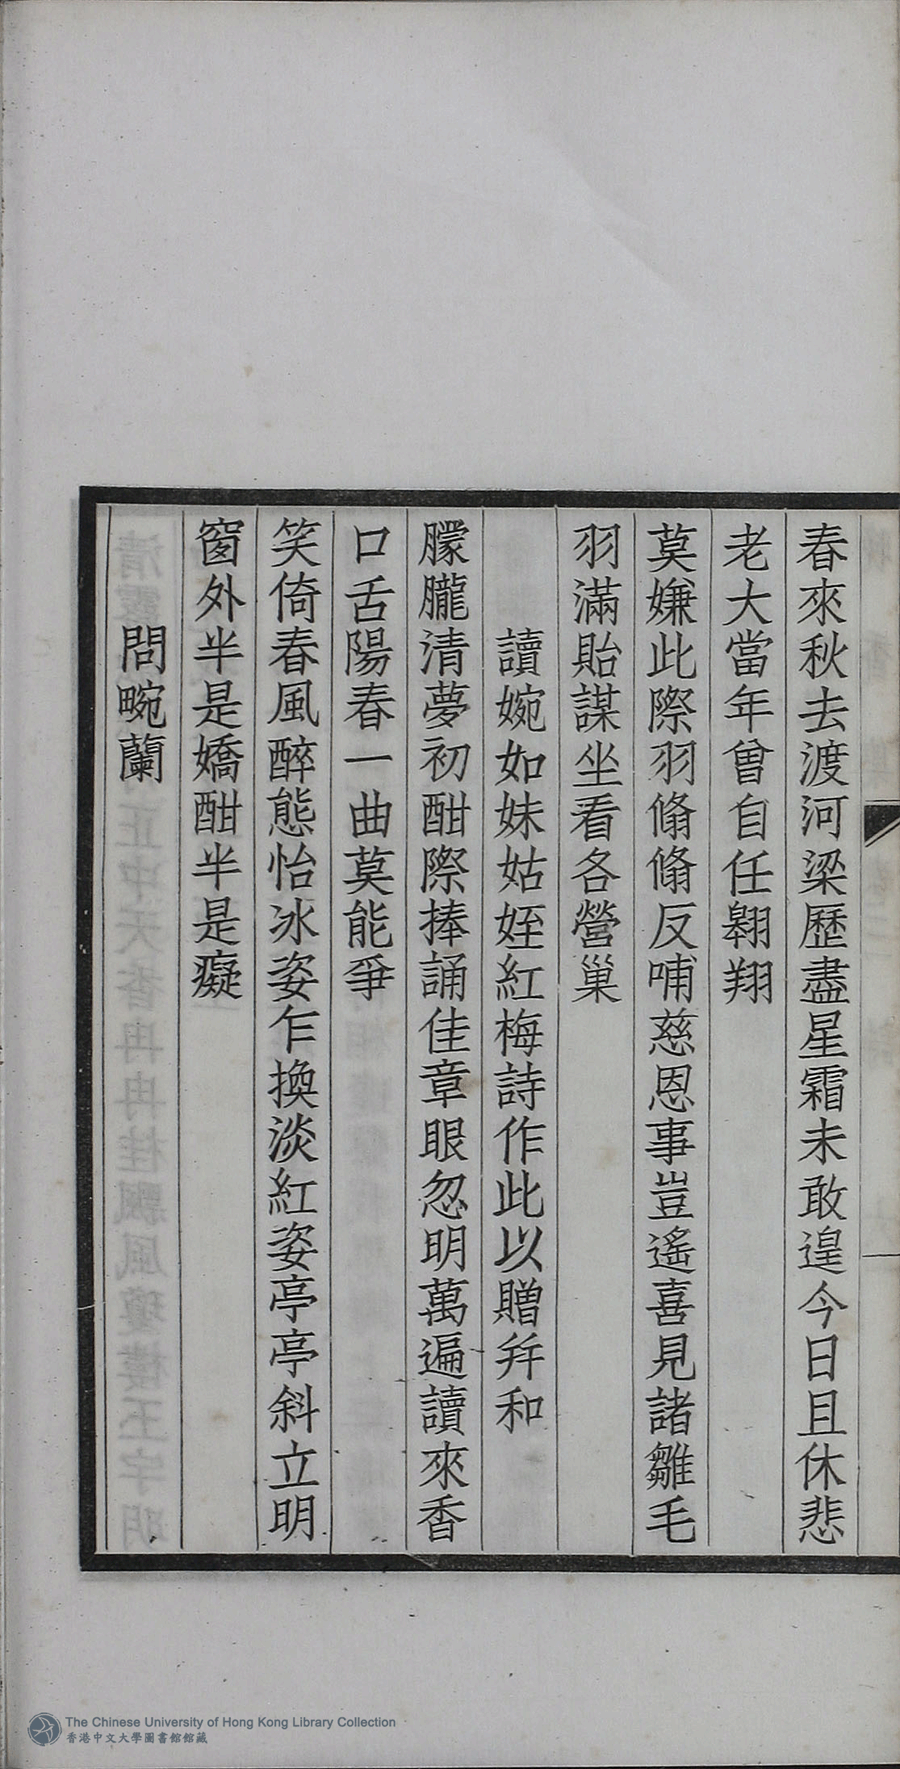 春來秋去渡河梁歷盡星霜未敢遑今日且休悲
老大當年曾自任翱翔
莫嫌此際羽翛翛反哺慈恩事豈遙喜見諸雛毛
羽滿貽謀坐看各營巢
讀婉如妹姑姪紅梅詩作此以贈幷和
朦朧清夢初酣際捧誦佳章眼忽明萬遍讀來香
口舌陽春一曲莫能爭
笑倚春風醉態怡冰姿乍換淡紅姿亭亭斜立明
窗外半是嬌酣半是癡
問畹蘭
The Chinese University of Hong Kong Library Collection
香港中文大學圖書館館藏